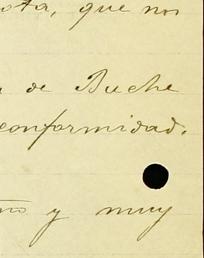 ota, que nos
de Buche
conformidad.
y muy